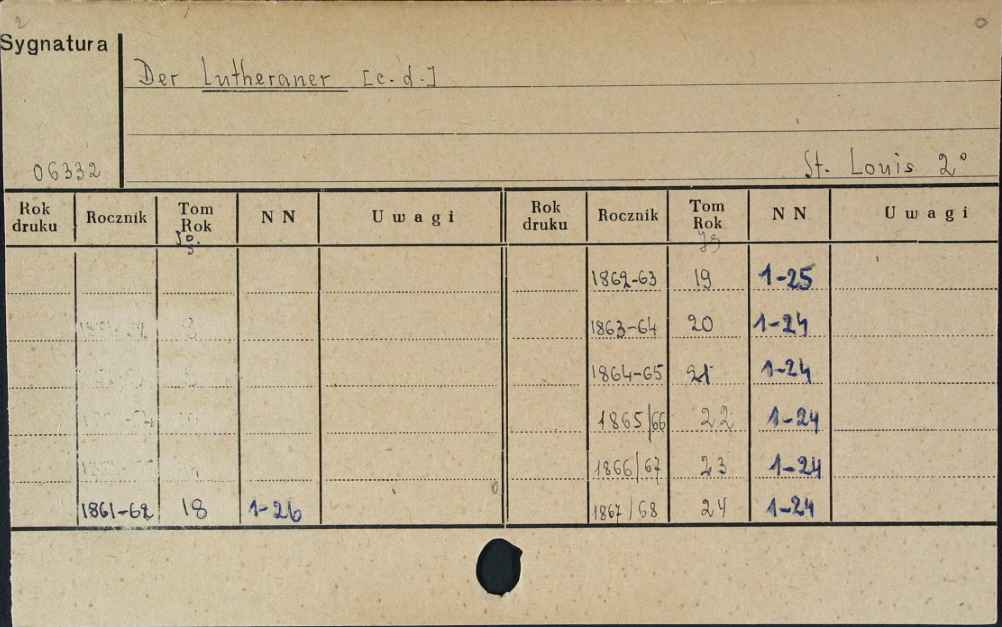 2
Sygnatura
Der Lutheraner [c. d.]
06332
St. Louis 2°
Rok druku Rocznik Tom Rok NN Uwagi Rok druku Rocznik Tom Rok NN Uwagi
1862-63 19 1-25
1863-64 20 1-24
1864-65 21 1-24
1865/66 22 1-24
1866/67 23 1-24
1861-62 18 1-26 1867/68 24 1-24